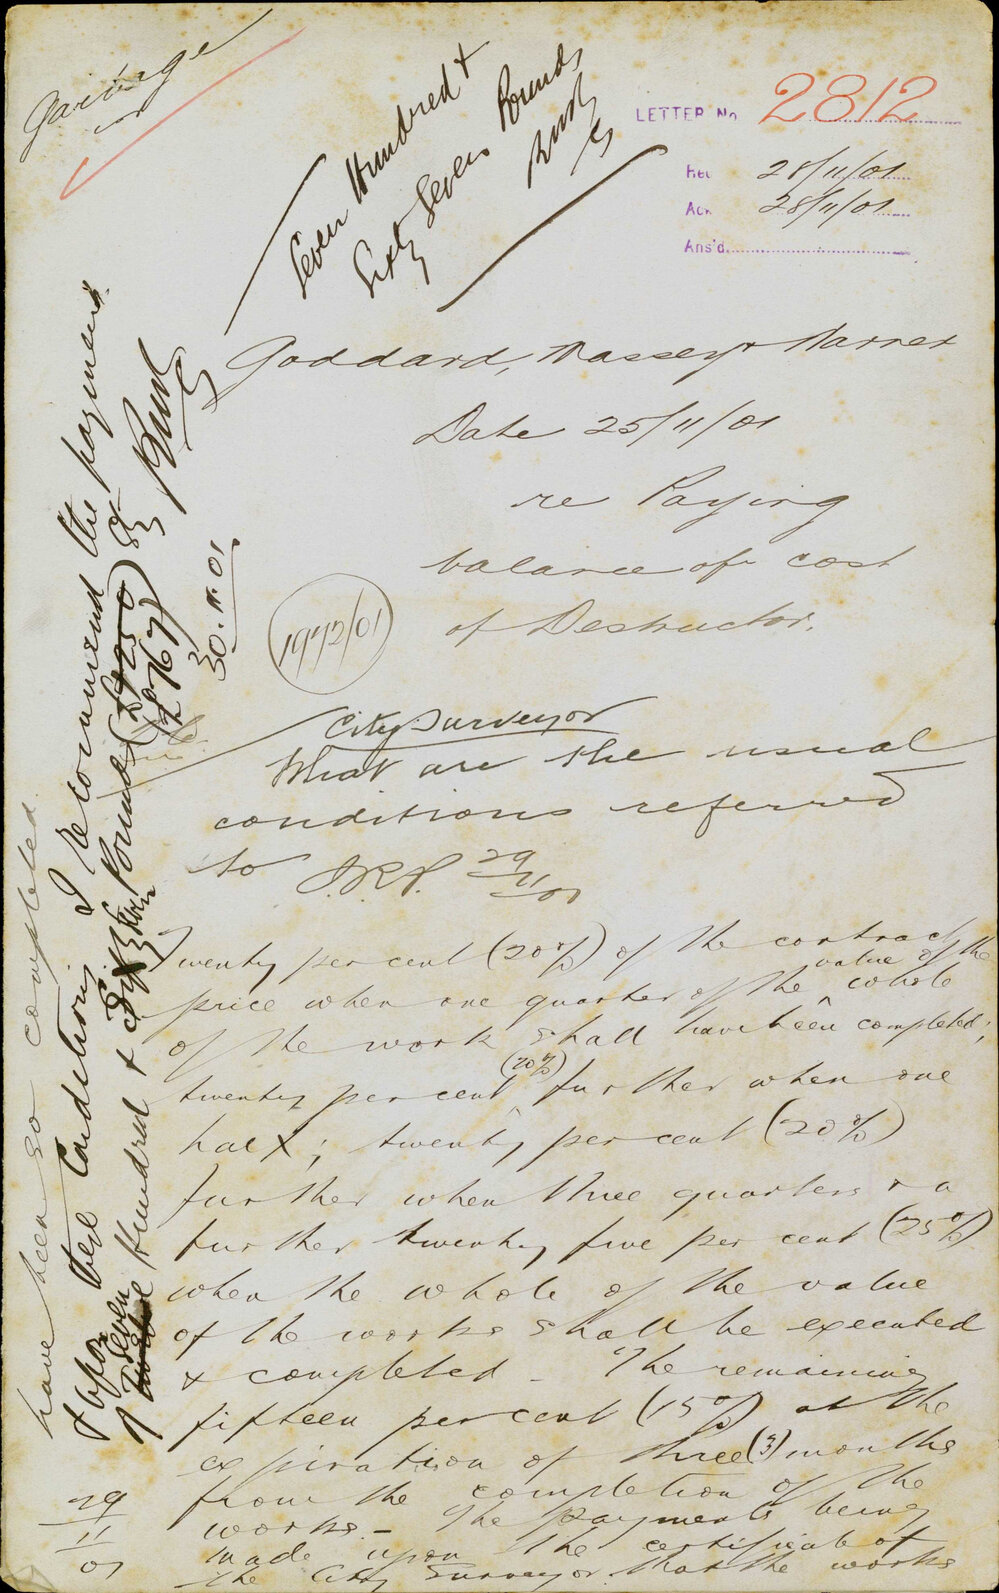 Garbage
Seven Hundred &
Sixty Seven Pounds
LETTER No. 2812
Rec 28/11/01
Ack 28/11/01
Ans'd
Goddard, Massey & Warner
Date 25/11/01
re Paying
balance of cost
of Destructor.
1972/01
City Surveyor
What are the usual
conditions referred
to J.R.P. 29/11/01
Twenty per cent (20%) of the contract
price when one quarter of the value of the whole
of the work shall have been completed;
twenty per cent (20%) further when one
half; twenty per cent (20%)
further when three quarters & a
further twenty five per cent (25%)
when the whole of the value
of the works shall be executed
& completed - The remaining
fifteen per cent (15%) at the
expiration of three (3) months
from the completion of the
works. - The payments being
made upon the certificate of
the City Surveyor that the works
have been so completed.
29/11/01
& upon these Conditions I recommend the payment
of Seven Hundred & Sixty Seven Pounds (£767)
30.11.01